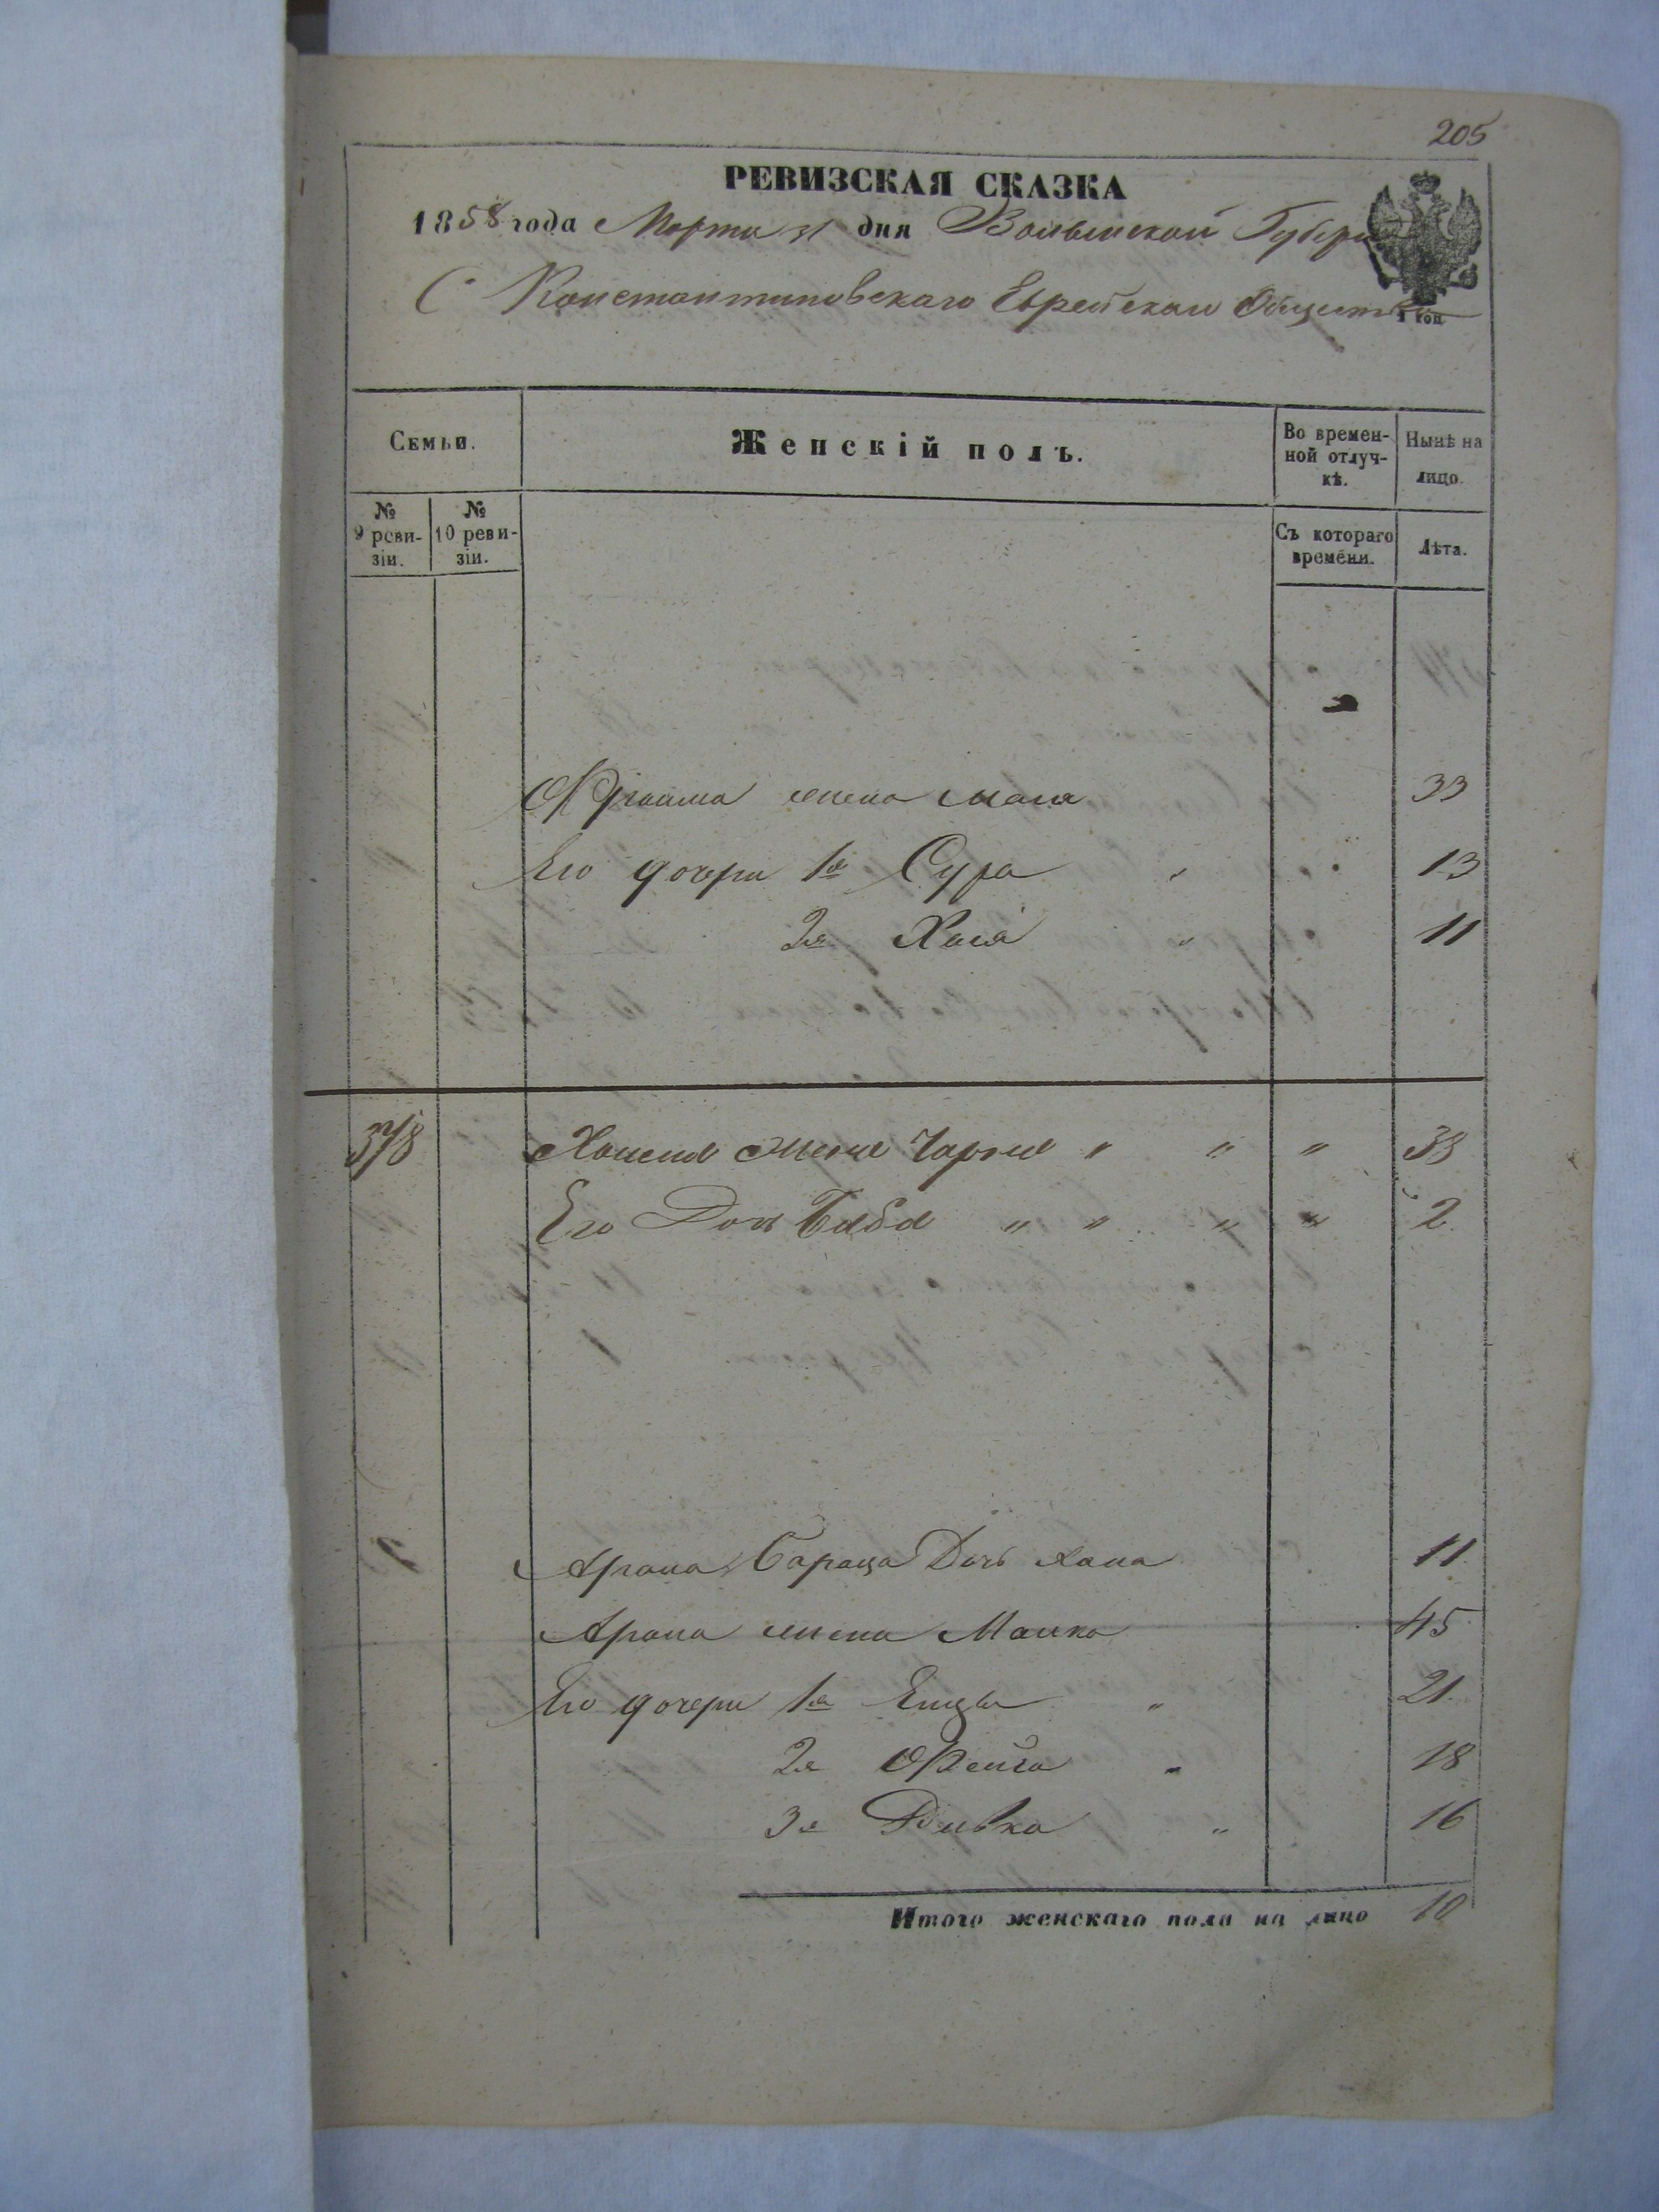 205
РЕВИЗСКАЯ СКАЗКА
1858 года Марта 31 дня Волынской Губерніи
С Константиновскаго Еврейскаго Общества
1 коп
Семьи. Женскій полъ. Во временной отлучкѣ. Нынѣ на лицо.
№ 9 ревизіи. № 10 ревизіи. Съ котораго времени. Лѣта.
жена 33
Его дочери 1я Сура " 13
2я Хася " 11
378 " " " 38
Его Дочь " " " " 2
Арона Дочь Хана 11
Арона жена Малка 45
Его дочери 1я " 21
2я Фейга " 18
3я Ривка " 16
Итого женскаго пола на лицо 10